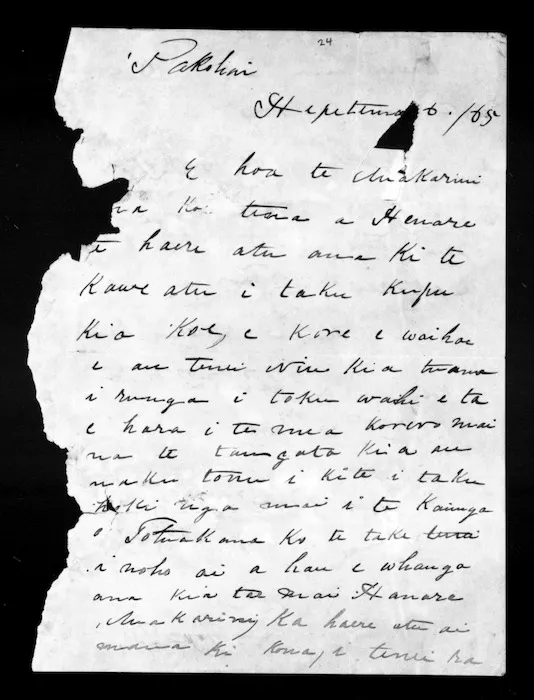 24
Pakohai
Hepetema 6. /65
E hoa te Makarini
na koe tena a Henare
te haere atu ana ki te
Kawe atu i taku Kupu
Kia Koe, e Kore e waihoe
e au tenei Niu Kia tuana
i runga i toku wahi e ta
e hara i te mea Korero mai
na te tangata Kia au
naku tonu i Kite i taku
hoki nga mai i te Kainga
o Totuakana Ko te take tenei
i noho ai a hau e whanga
ana Kia tae mai Hanare
Makarini, Ka haere atu ai
maua Ki Kona, i tenei ra